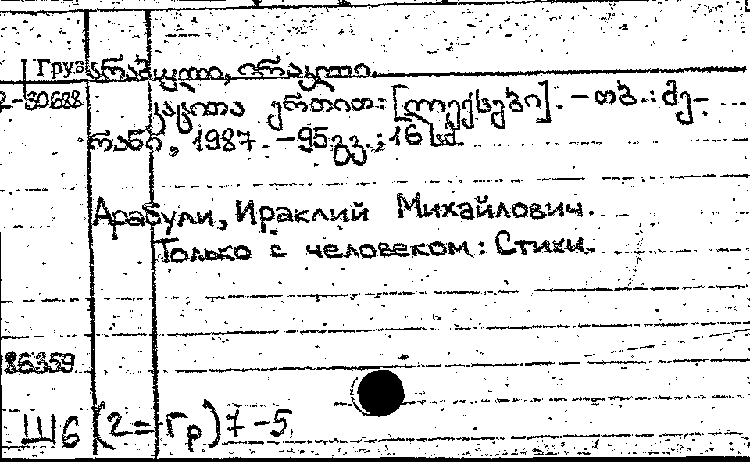 Груз
არაბული, ირაკლი.
2-50688
კაცითა ერთით: [ლექსები]. – თბ.: მე-
რანი, 1987. – 95გვ.; 16 სმ.
Арабули, Ираклий Михайлович.
Только с человеком: Стихи.
86359
Ш6(2=Гр)7-5